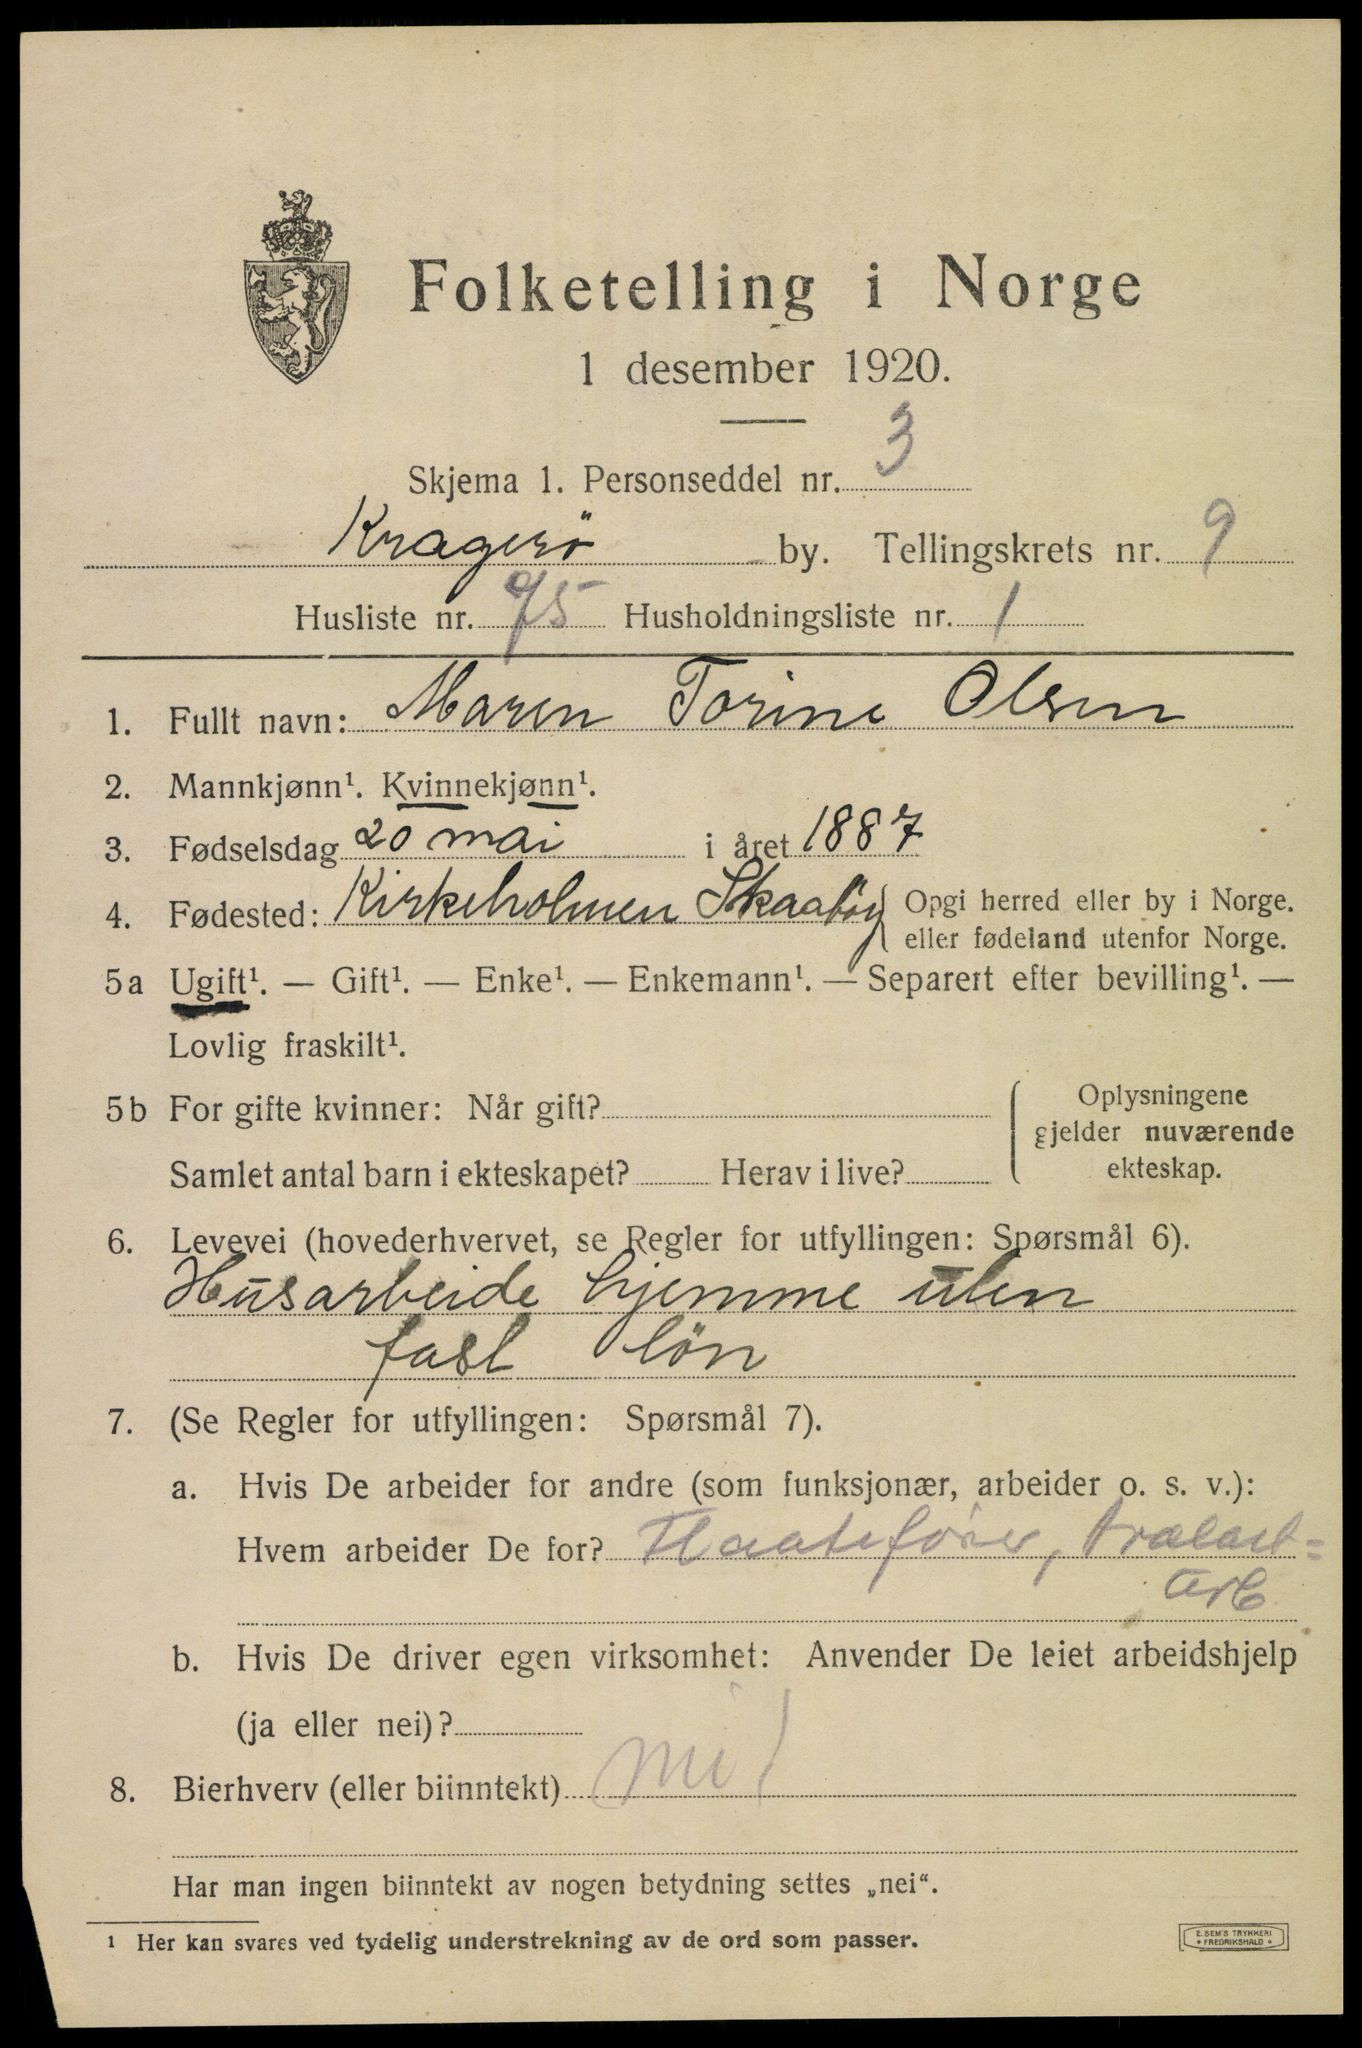 Folketelling i Norge
1 desember 1920.
Skjema 1. Personseddel nr. 3
Kragerö by. Tellingskrets nr. 9
Husliste nr. 75 Husholdningsliste nr. 1
1. Fullt navn: Maren Torine Olsen
2. Mannkjønn¹. Kvinnekjønn¹.
3. Fødselsdag 20 mai i året 1887
4. Fødested: Kirkeholmen Skaatöy Opgi herred eller by i Norge.
eller fødeland utenfor Norge.
5a Ugift¹. — Gift¹. — Enke¹. — Enkemann¹. — Separert efter bevilling¹. —
Lovlig fraskilt¹.
5b For gifte kvinner: Når gift? Oplysningene
gjelder nuværende
Samlet antal barn i ekteskapet? Herav i live? ekteskap.
6. Levevei (hovederhvervet, se Regler for utfyllingen: Spørsmål 6).
Husarbeide hjemme uten
fast lön
7. (Se Regler for utfyllingen: Spørsmål 7).
a. Hvis De arbeider for andre (som funksjonær, arbeider o. s. v.):
Hvem arbeider De for? Flaatefører, trælast=
arb
b. Hvis De driver egen virksomhet: Anvender De leiet arbeidshjelp
(ja eller nei)?
8. Bierhverv (eller biinntekt)
Har man ingen biinntekt av nogen betydning settes „nei“.
¹ Her kan svares ved tydelig understrekning av de ord som passer.
E. SEM'S TRYKKERI
* FREDRIKSHALD *